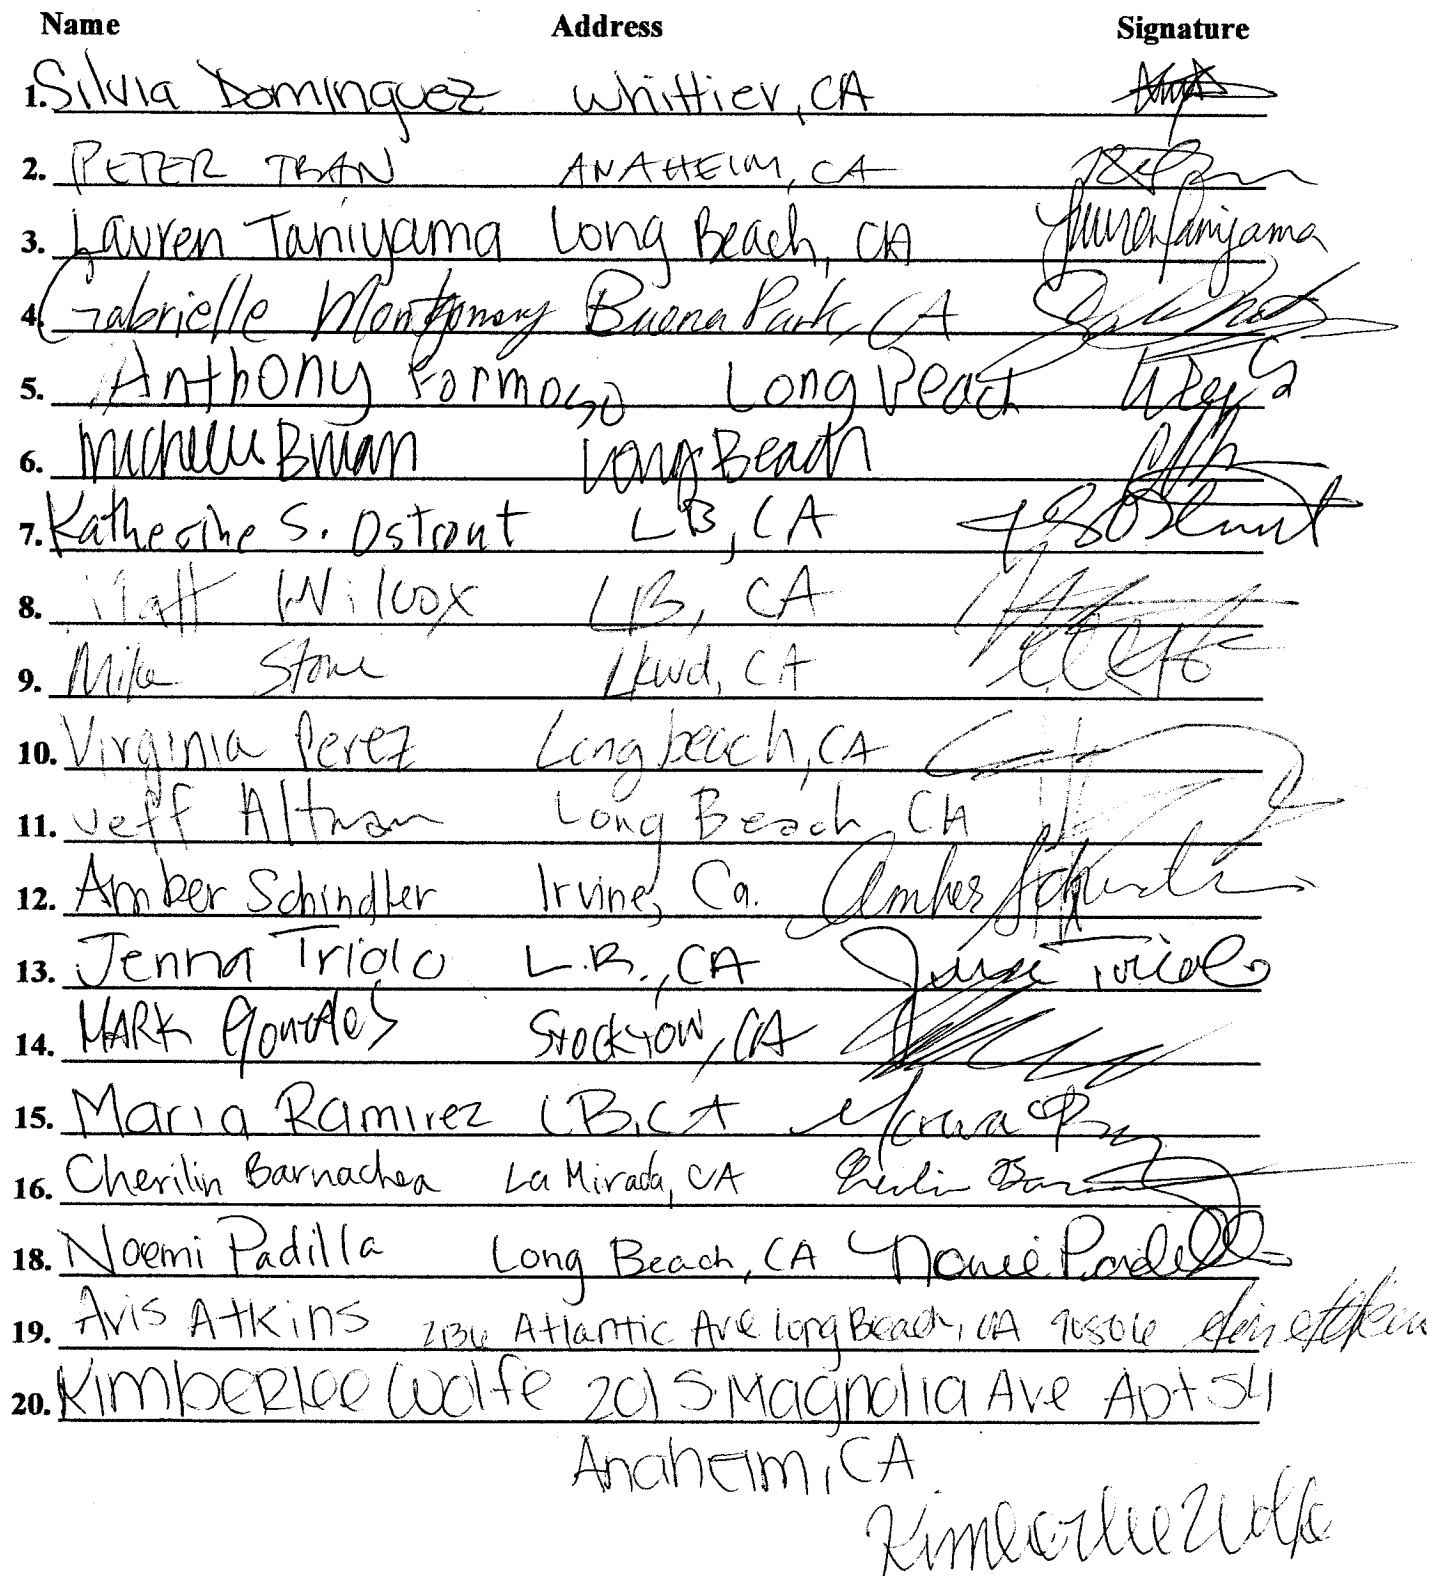 Name Address Signature
1. Silvia Dominguez Whittier, CA
2. PETER TRAN ANAHEIM, CA
3. Lauren Taniyama Long Beach, CA Lauren Taniyama
4. Gabrielle Montgomery Buena Park, CA
5. Anthony Formoso Long Beach
6. Michelle Long Beach
7. Katherine S. Ostrout LB, CA
8. Matt Wilcox LB, CA
9. Mike Stone Lkwd, CA
10. Virginia Perez Long beach, CA
11. Jeff Altman Long Beach, CA
12. Amber Schindler Irvine, Ca. Amber Schindler
13. Jenna Triolo L.B., CA Jenna Triolo
14. MARK Gonzales Stockton, CA
15. Maria Ramirez LB, CA Maria
16. Cherilin Barnachea La Mirada, CA
18. Noemi Padilla Long Beach, CA Noemi Padilla
19. Avis Atkins Atlantic Ave Long Beach, CA 90806 Avis Atkins
20. Kimberlee Wolfe 201 S. Magnolia Ave Apt 54
Anaheim, CA
Kimberlee Wolfe